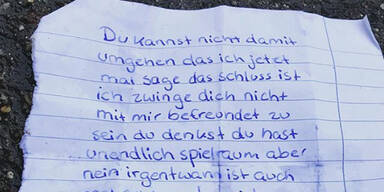 Du kannst nicht damit
umgehen das ich jetzt
mal sage das schluss ist
ich zwinge dich nicht
mit mir befreundet zu
sein du denkst du hast
unandlich spielraum aber
nein irgentwan ist auch